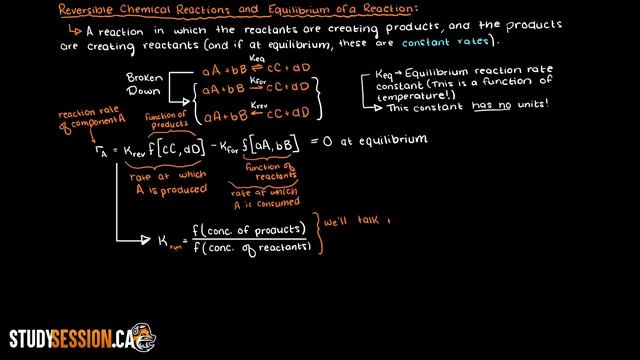 Reversible Chemical Reactions and Equilibrium of a Reaction:
↳ A reaction in which the reactants are creating products, and the products
are creating reactants (and if at equilibrium, these are constant rates).
Broken Down
aA + bB ⇌ cC + dD Keq
aA + bB → cC + dD Kfor
aA + bB ← cC + dD Krev
Keq → Equilibrium reaction rate
constant (This is a function of
temperature!)
This constant has no units!
reaction rate
of component A
function of
products
rA = Krev f[cC, dD] - Kfor f[aA, bB] = 0 at equilibrium
rate at which
A is produced
function of
reactants
rate at which
A is consumed
K = f(conc. of products) / f(conc. of reactants)
We'll talk
STUDYSESSION.CA